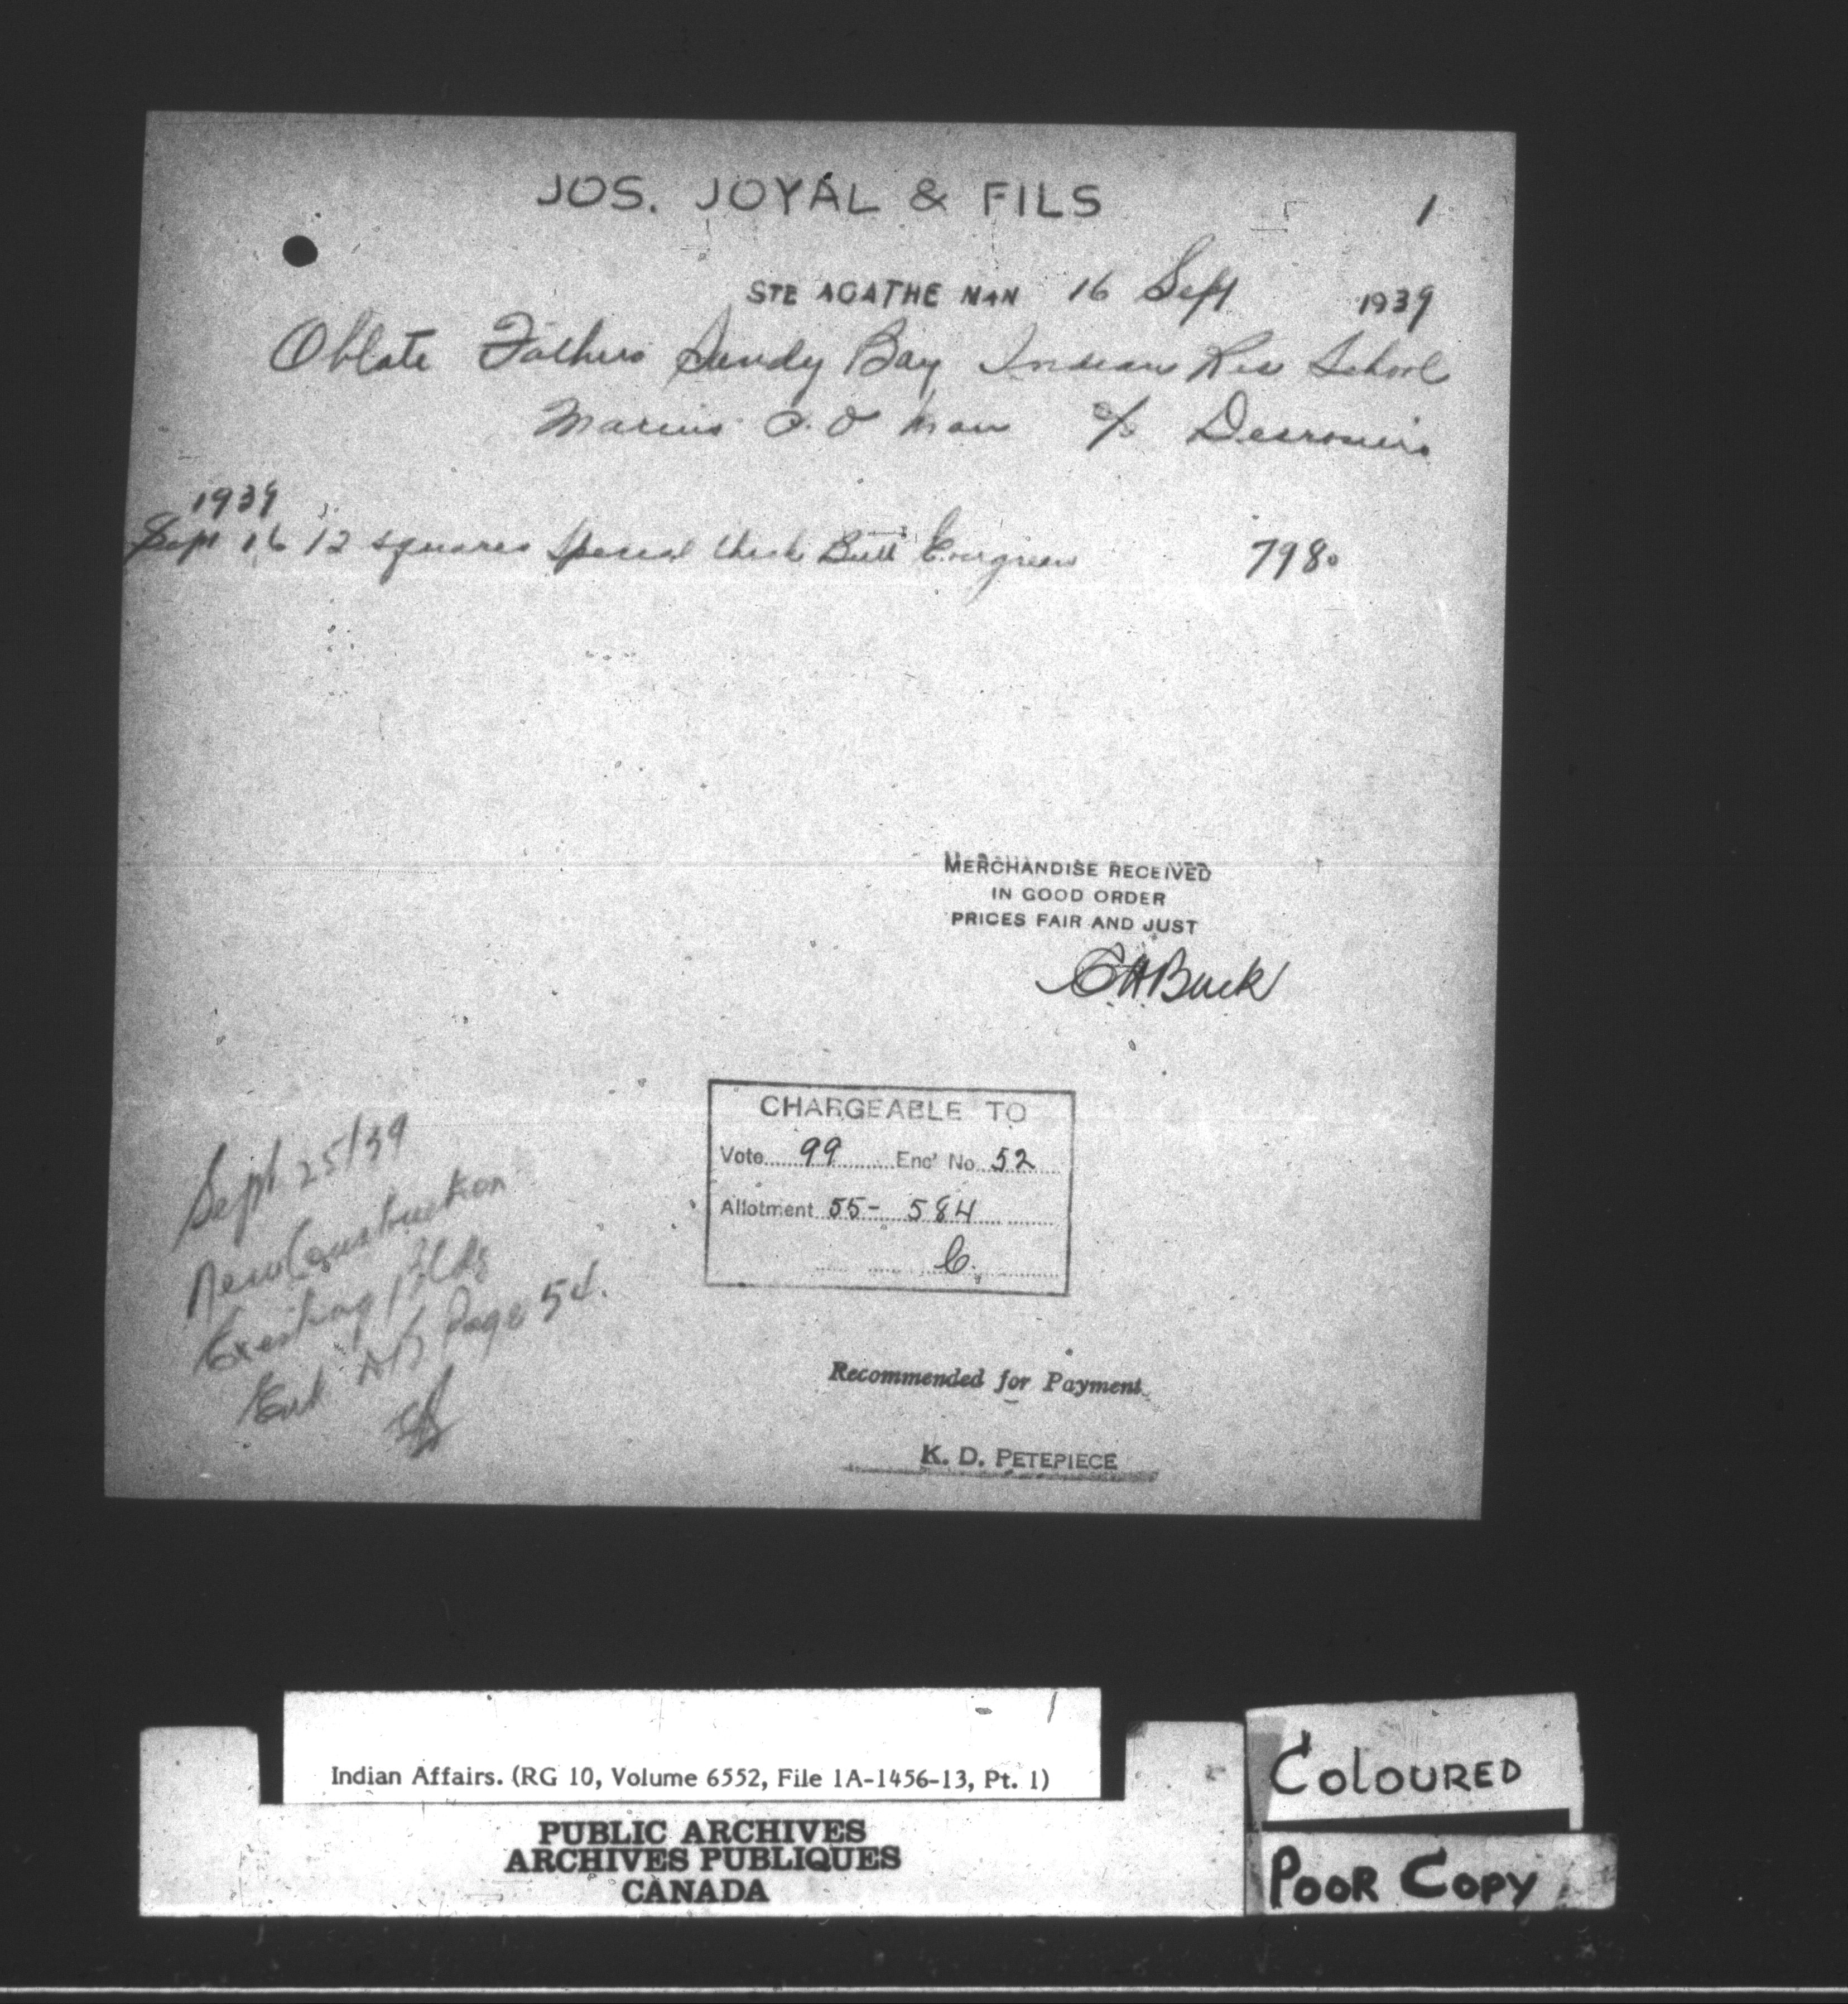 JOS. JOYAL & FILS
1
STE AGATHE MAN 16 Sept 1939
Oblate Fathers Sandy Bay Indian Res School
Marius P.O Man c/o Desrosiers
1939
Sept 16 12 squares Special thick Butt Evergreen 7980
MERCHANDISE RECEIVED
IN GOOD ORDER
PRICES FAIR AND JUST
CHARGEABLE TO
Vote 99 Enc' No 52
Allotment 55- 584
C.
Sept 25/39
New Construction
Existing Bldg
Page 54.
Recommended for Payment
K. D. PETEPIECE
1
Indian Affairs. (RG 10, Volume 6552, File 1A-1456-13, Pt. 1)
PUBLIC ARCHIVES
ARCHIVES PUBLIQUES
CANADA
COLOURED
POOR COPY